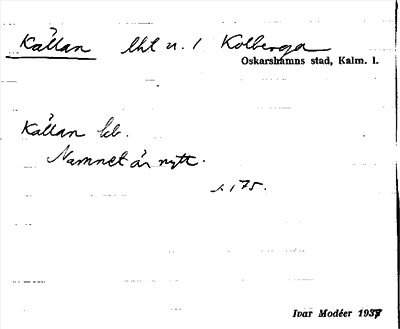 Källan lht u. 1 Kolberga
Oskarshamns stad, Kalm. l.
Källan kb.
Namnet är nytt.
s. 175.
Ivar Modéer 1937